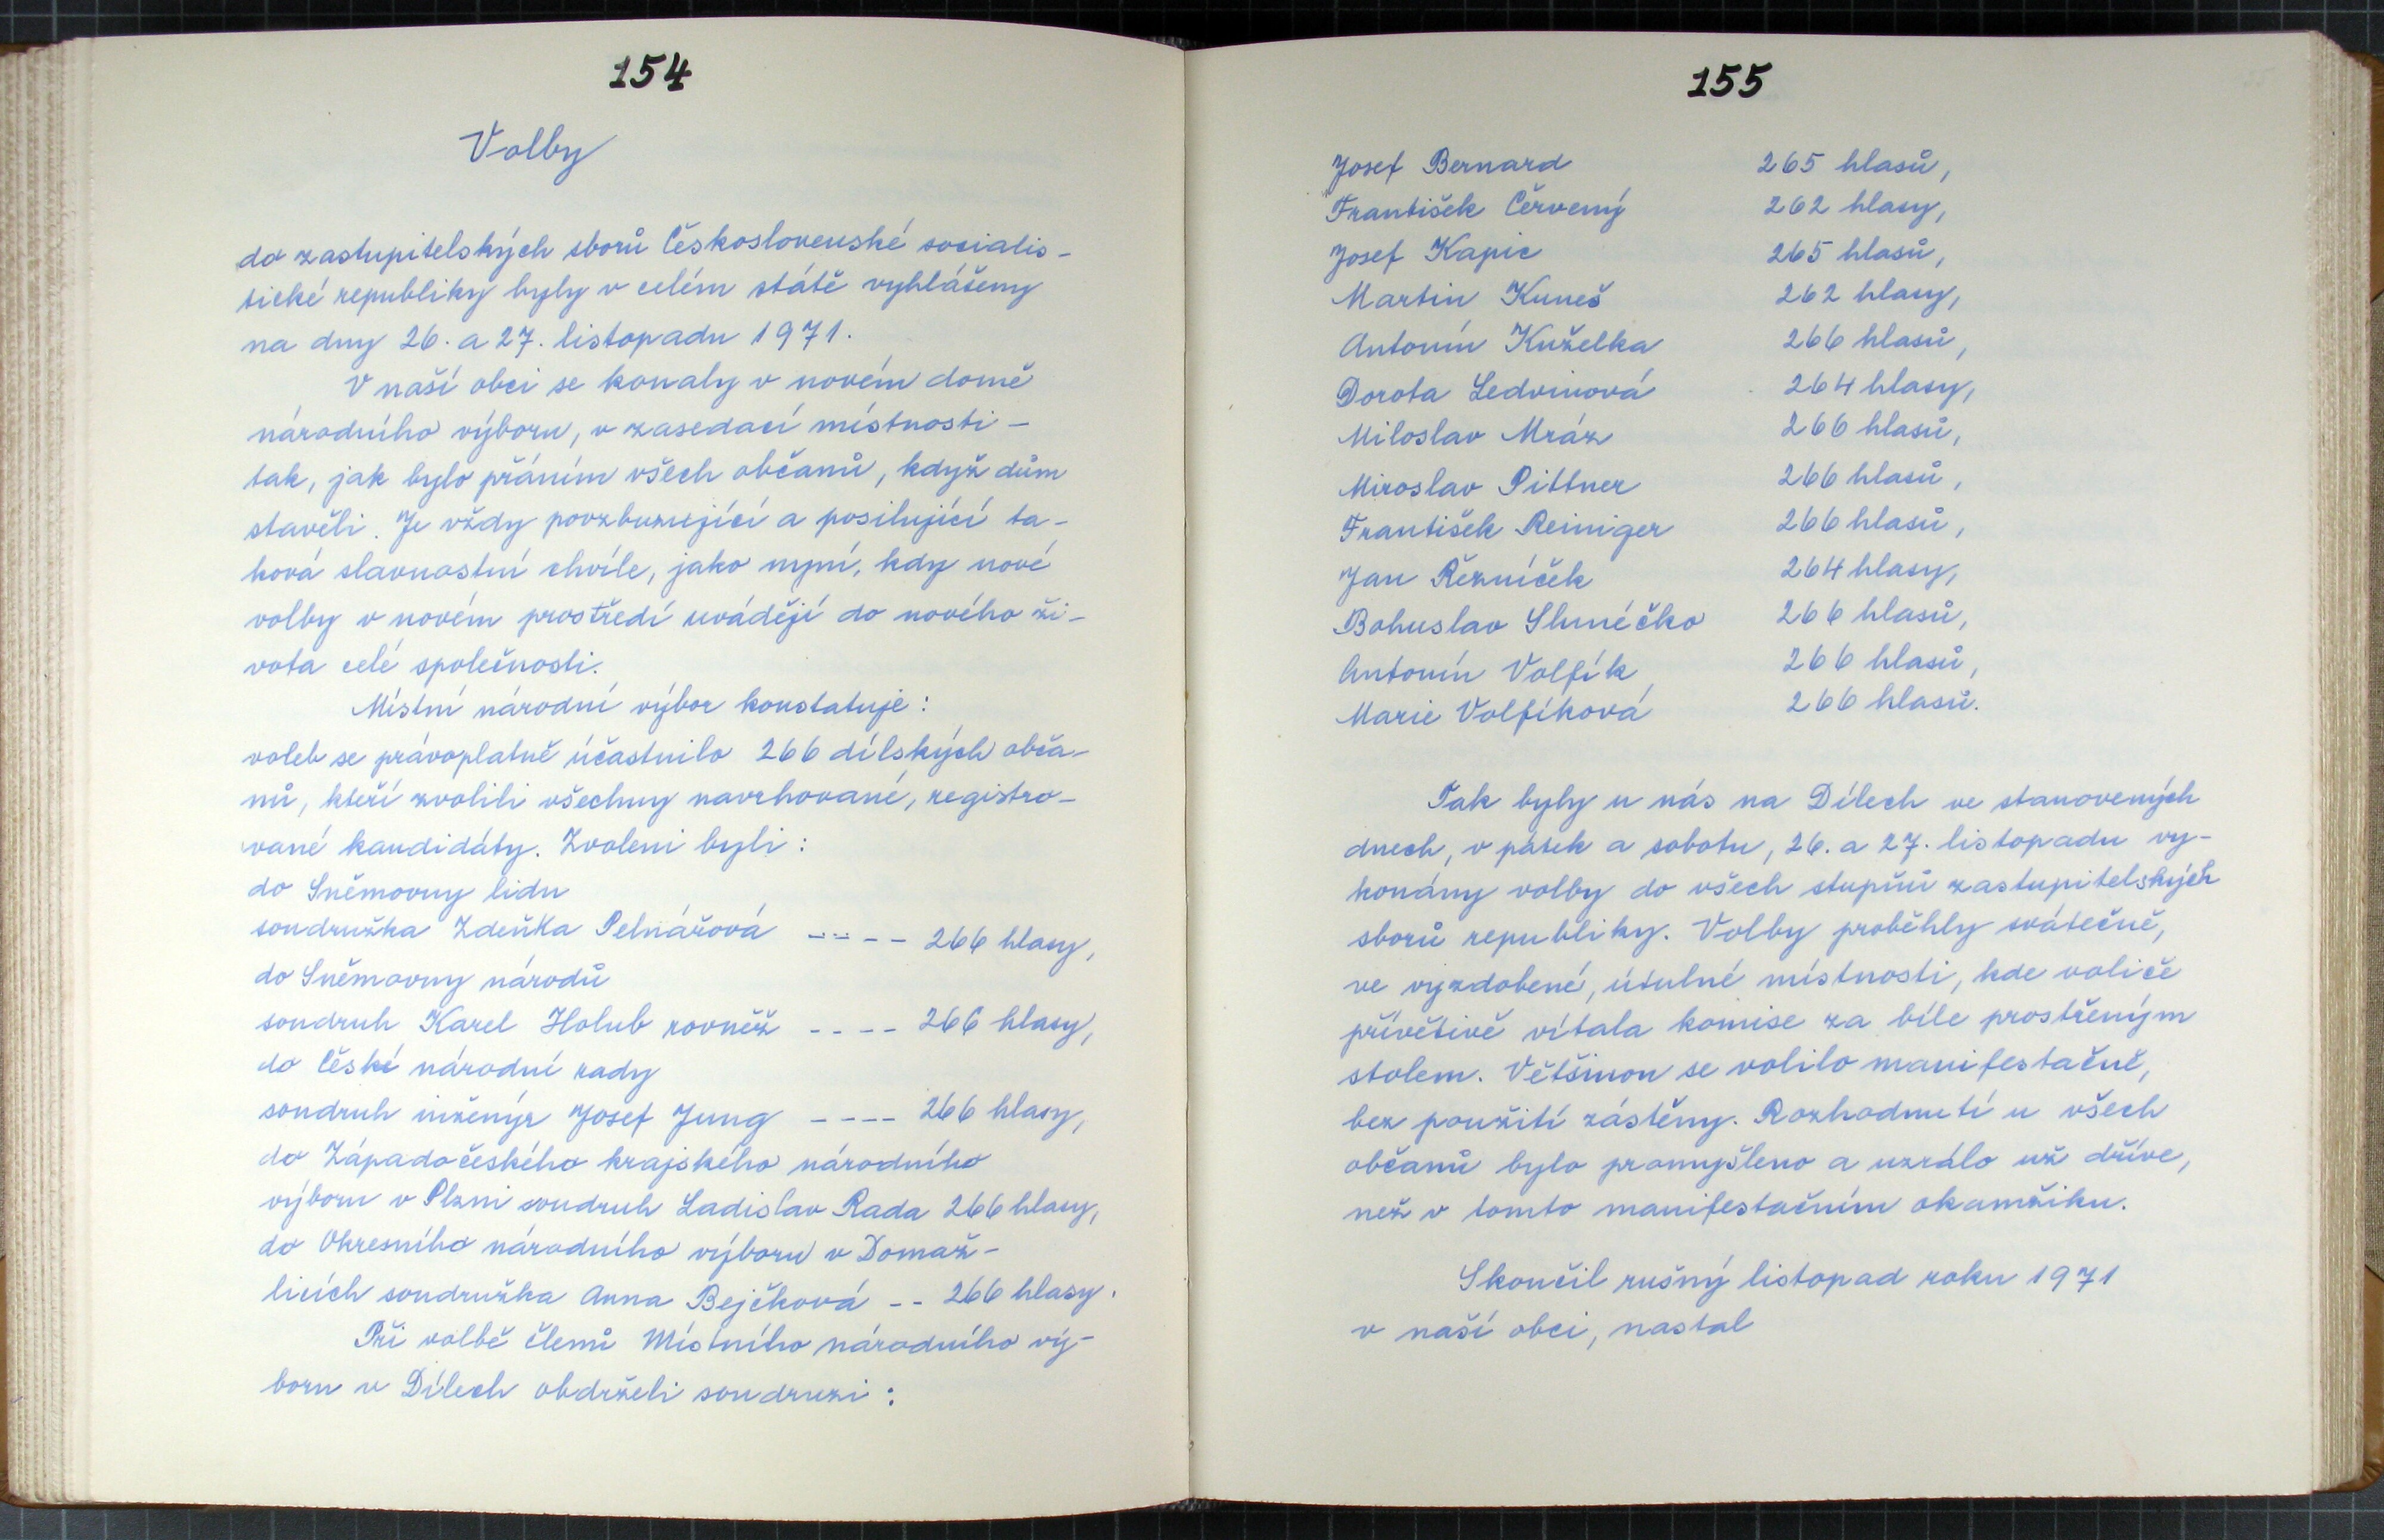 154
Volby
do zastupitelských sborů Československé socialis-
tické republiky byly v celém státě vyhlášeny
na dny 26. a 27. listopadu 1971.
V naší obci se konaly v novém domě
národního výboru, v zasedací místnosti -
tak, jak bylo přáním všech občanů, když dům
stavěli. Je vždy povzbuzující a posilující ta-
ková slavnostní chvíle, jako nyní, kdy nové
volby v novém prostředí uvádějí do nového ži-
vota celé společnosti.
Místní národní výbor konstatuje:
voleb se právoplatně účastnilo 266 dílských obča-
nů, kteří zvolili všechny navrhované, registro-
vané kandidáty. Zvoleni byli:
do Sněmovny lidu
soudružka Zdeňka Pelnářová ---- 266 hlasy,
do Sněmovny národů
soudruh Karel Holub rovněž ---- 266 hlasy,
do České národní rady
soudruh inženýr Josef Jung ---- 266 hlasy,
do Západočeského krajského národního
výboru v Plzni soudruh Ladislav Rada 266 hlasy,
do Okresního národního výboru v Domaž-
licích soudružka Anna Bejčková -- 266 hlasy.
Při volbě členů Místního národního vý-
boru v Dílech obdrželi soudruzi:
155
Josef Bernard 265 hlasů,
František Červený 262 hlasy,
Josef Kapic 265 hlasů,
Martin Kuneš 262 hlasy,
Antonín Kuželka 266 hlasů,
Dorota Ledvinová 264 hlasy,
Miloslav Mráz 266 hlasů,
Miroslav Pittner 266 hlasů,
František Reiniger 266 hlasů,
Jan Řezníček 264 hlasy,
Bohuslav Slunéčko 266 hlasů,
Antonín Volfík 266 hlasů,
Marie Volfíková 266 hlasů.
Tak byly u nás na Dílech ve stanovených
dnech, v pátek a sobotu, 26. a 27. listopadu vy-
konány volby do všech stupňů zastupitelských
sborů republiky. Volby proběhly svátečně,
ve vyzdobené, útulné místnosti, kde voliče
přívětivě vítala komise za bíle prostřeným
stolem. Většinou se volilo manifestačně,
bez použití zástěny. Rozhodnutí u všech
občanů bylo promyšleno a uzrálo už dříve,
než v tomto manifestačním okamžiku.
Skončil rušný listopad roku 1971
v naší obci, nastal